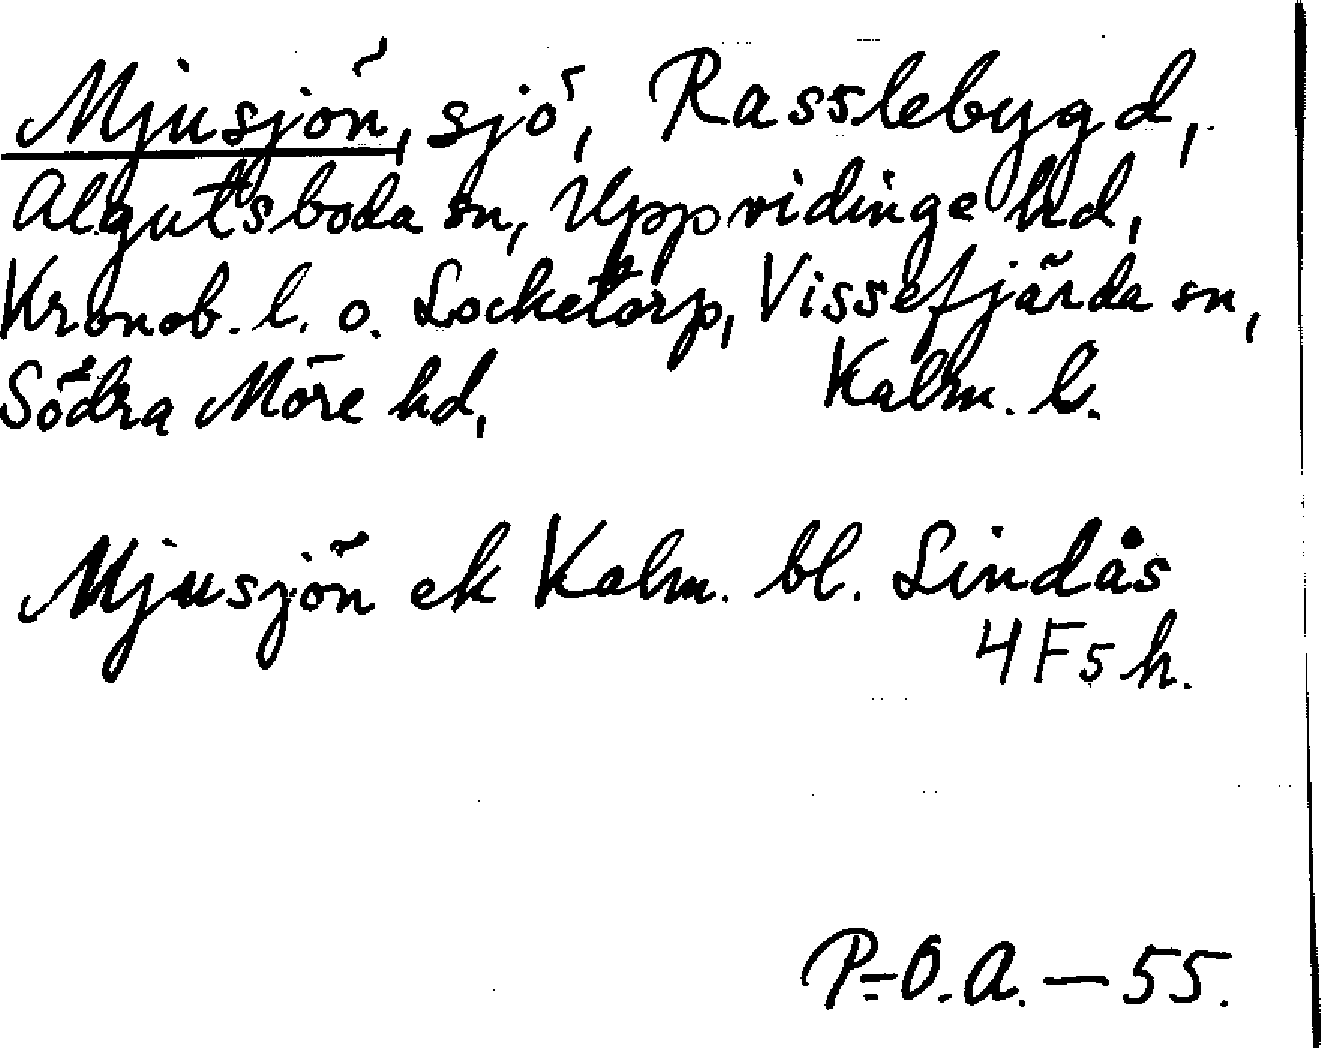 Mjusjön, sjö, Rasslebygd,
Algutsboda sn, Uppvidinge hd,
Kronob. l. o. Locketorp, Vissefjärda sn,
Södra Möre hd, Kalm. l.
Mjusjön ek Kalm. bl. Lindås
4F5h.
P.-O.A. — 55.